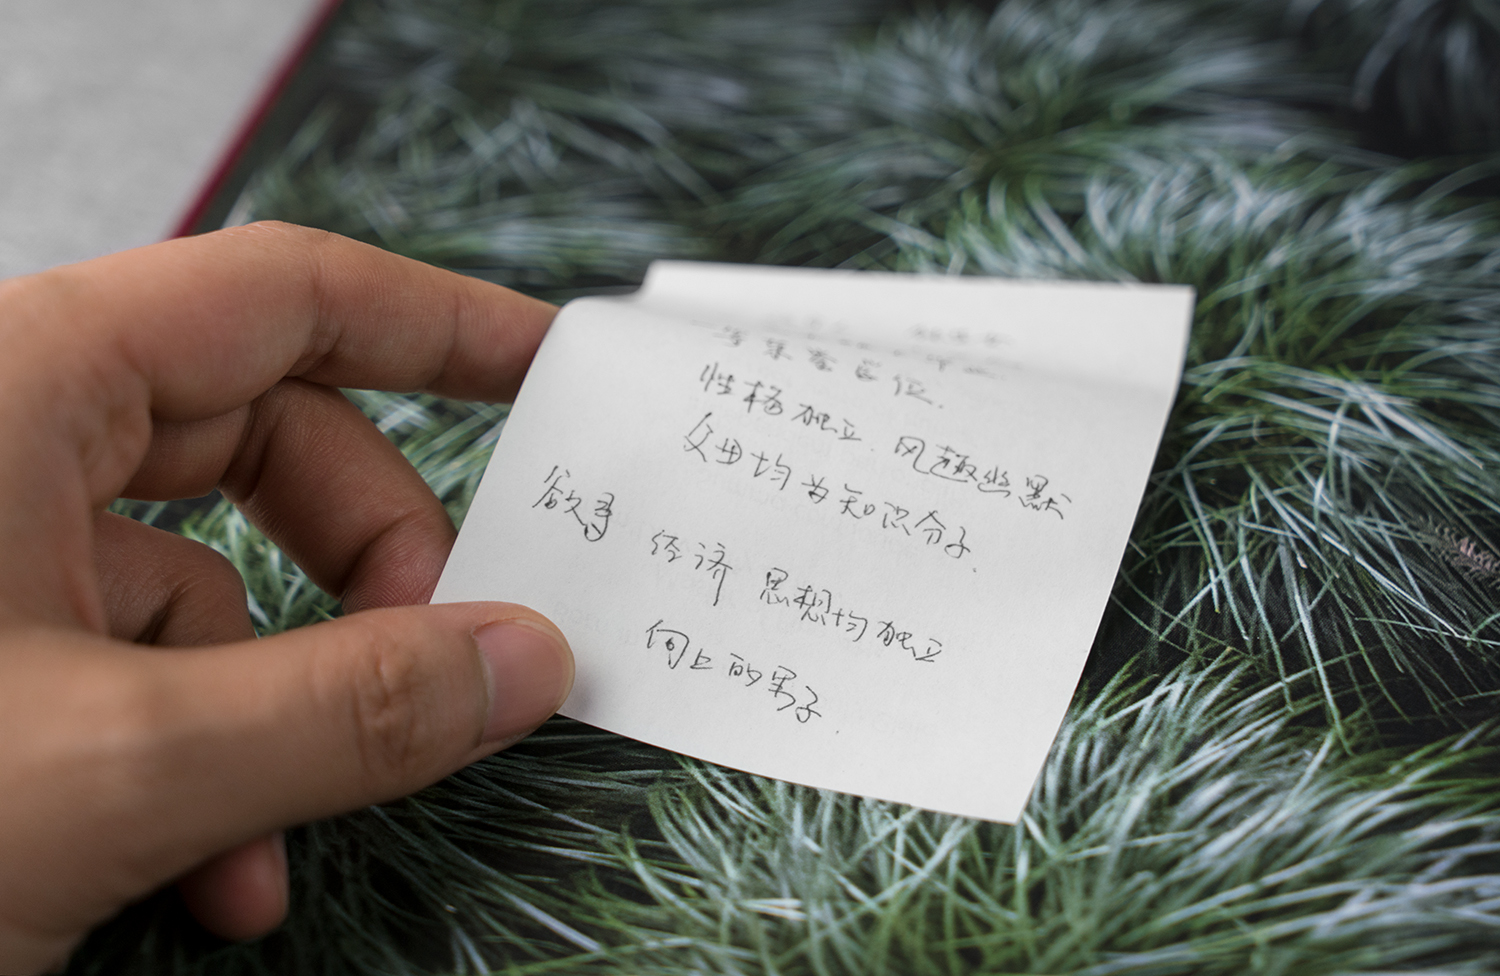 性格独立 风趣幽默
父母均为知识分子.
欲寻 经济 思想均独立
向上的男子.